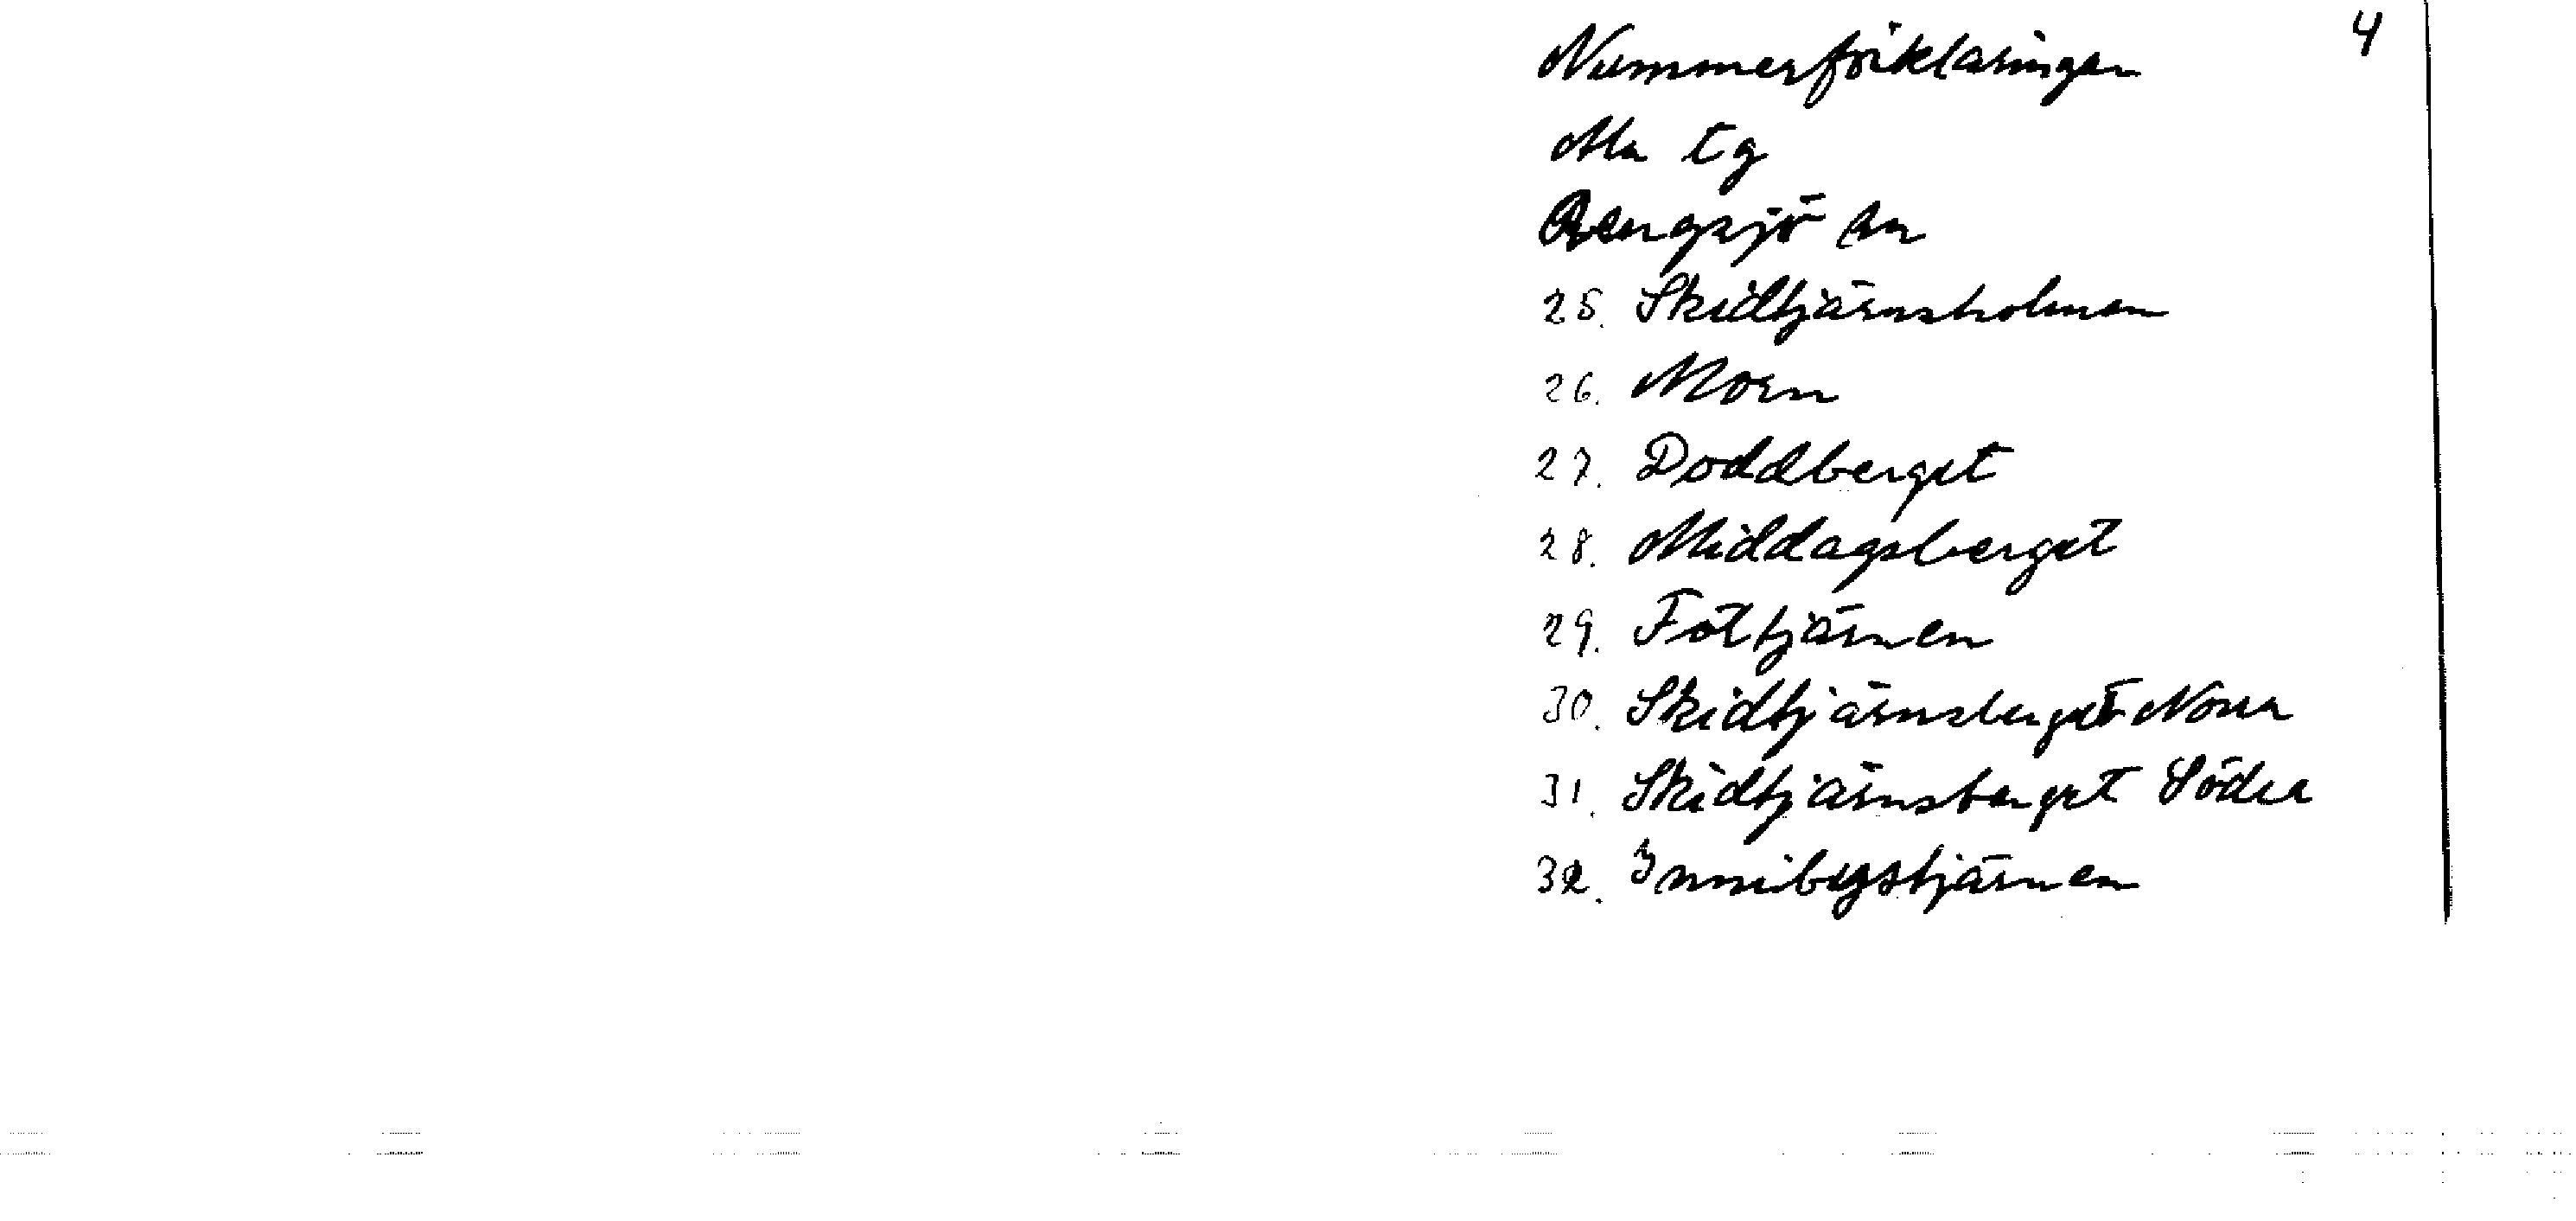 4
Nummerförklaringen
Ala tg
Bergsjö sn
25. Skidtjärnsholmen
26. Morn
27. Doddberget
28. Middagsberget
29. Fottjärnen
30. Skidtjärnsberget Norra
31. Skidtjärnsberget Södra
32. Innibystjärnen